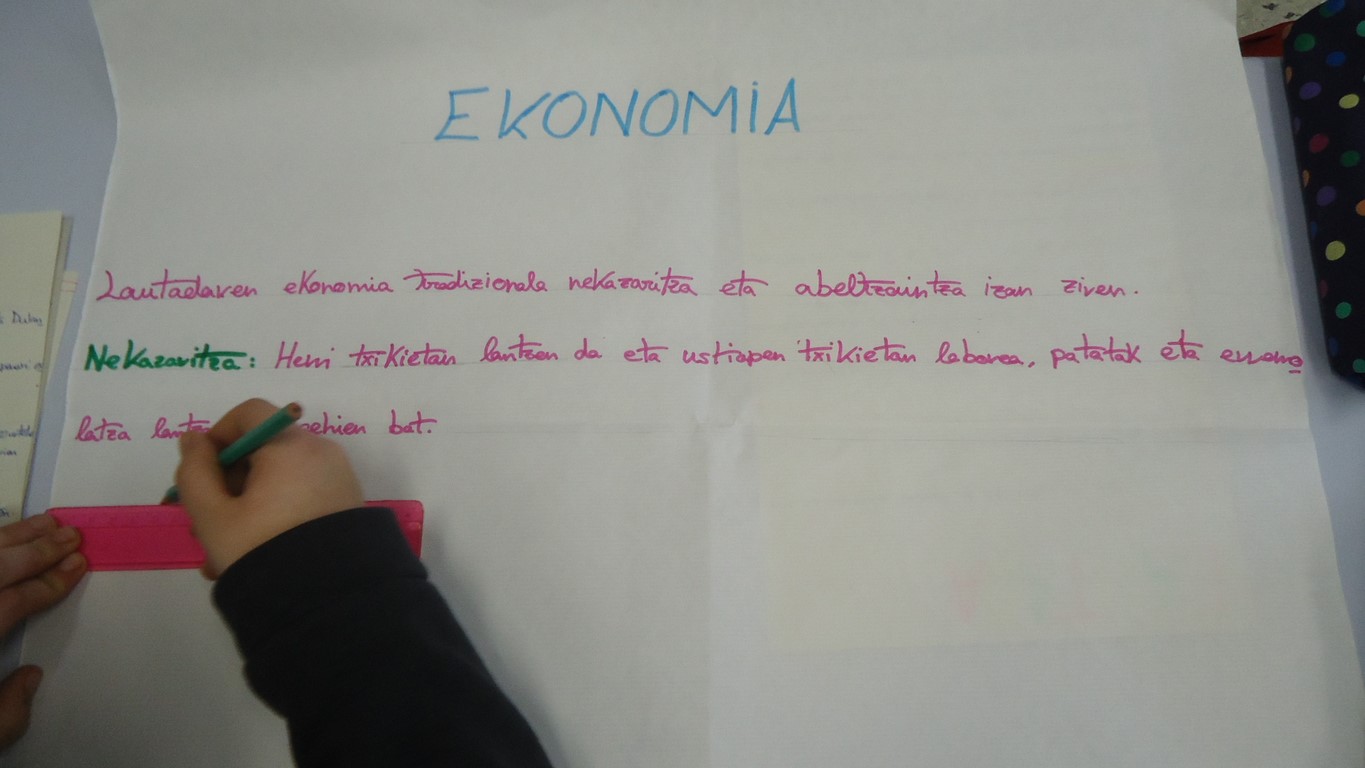 EKONOMIA
Lautadaren ekonomia tradizionala nekazaritza eta abeltzaintza izan ziren.
Nekazaritza: Herri txikietan lantzen da eta ustiapen txikietan laborea, patatak eta erremo
latza bat.